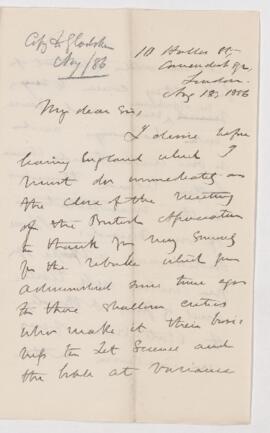 Copy to Gladstone
Aug/86
10 Holles St
Cavendish Sqr.
London
Aug 18, 1886
My dear Sir,
I desire before
leaving England which I
must do immediately on
the close of the meeting
of the British Association
to thank you very sincerely
for the rebuke which you
administered some time ago
to those shallow critics
who make it their busi
ness to set Science and
the bible at variance